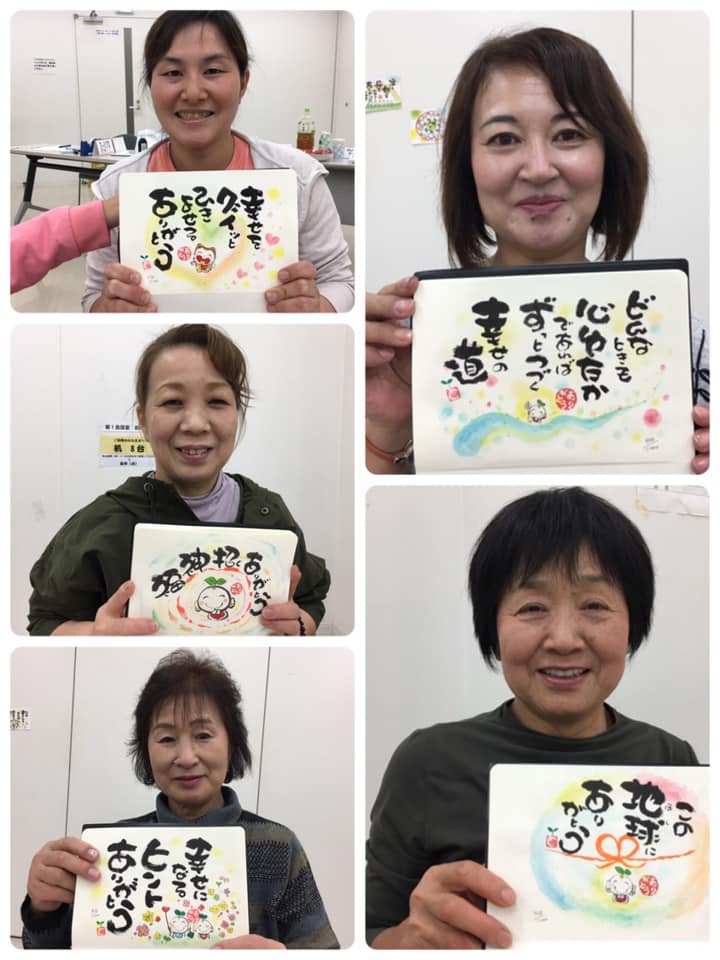 幸せを
グイッと
ひき
よせる
ありがとう
どんな
ときも
心ゆたか
であれば
ずっとつづく
幸せの
道
第1会議室
机 8台
福神招くありがとう
幸せに
なる
ヒント
ありがとう
この
地球に
ほし
あり
がとう